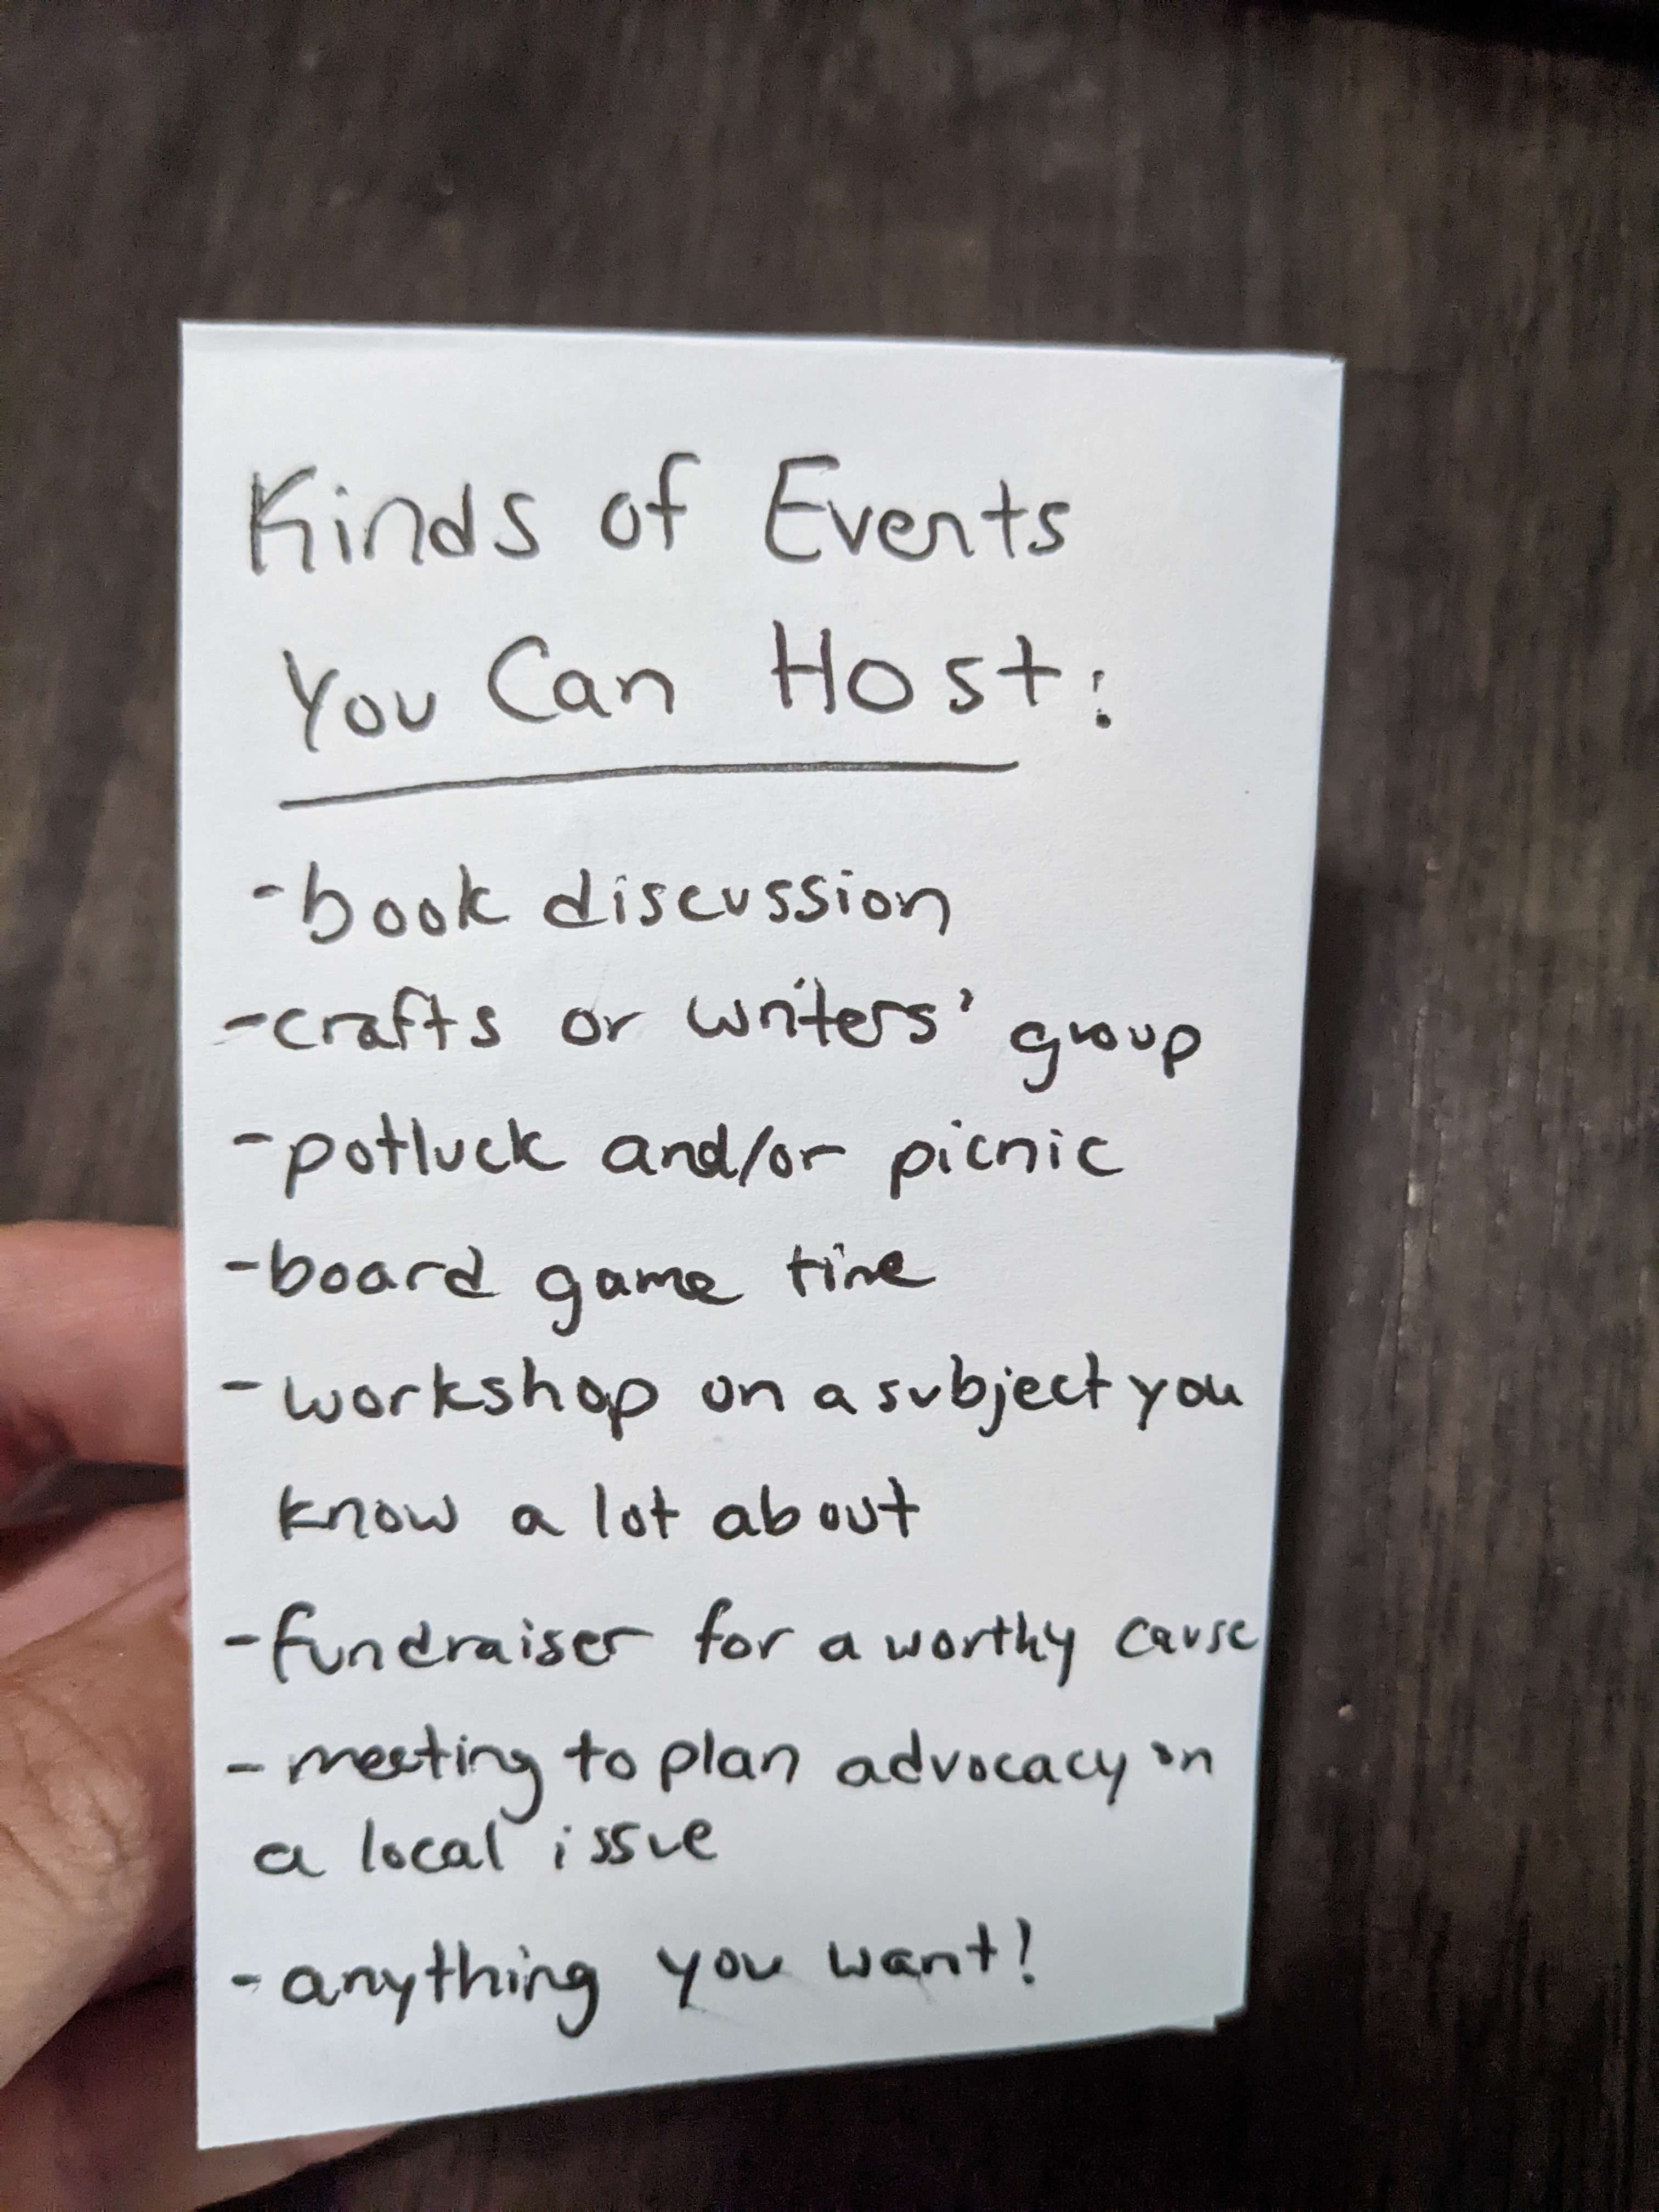 Kinds of Events
You Can Host:
-book discussion
-crafts or writers' group
-potluck and/or picnic
-board game time
-workshop on a subject you
know a lot about
-fundraiser for a worthy cause
-meeting to plan advocacy on
a local issue
-anything you want!